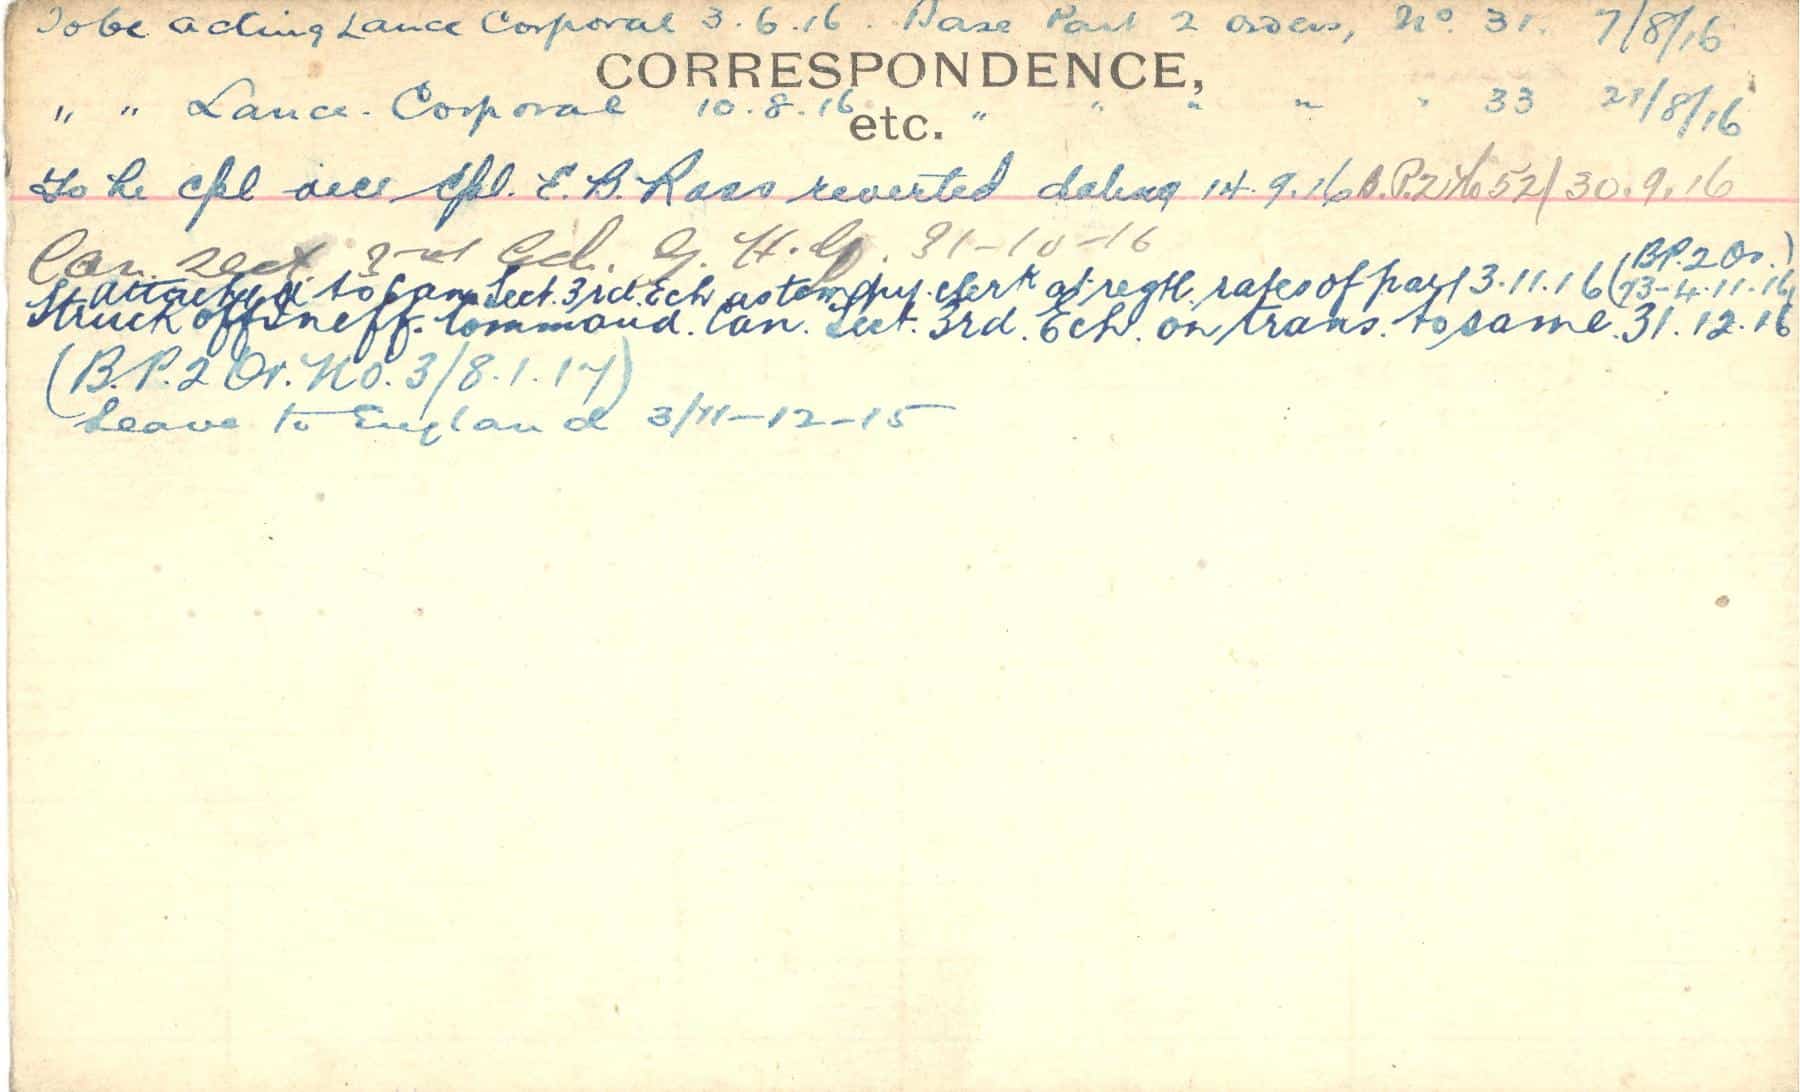 To be acting Lance Corporal 3.6.16. Base Part 2 orders, No. 31. 7/8/16
CORRESPONDENCE,
" " Lance-Corporal 10.8.16 " " " " " 33 /8/16
etc.
To be cpl vice Cpl. E.B. Ross reverted dating 14.9.16 B.P.2 No 52/30.9.16
Can. Sect 3rd Ech. G.H.Q. 31-10-16
Attached to Can. Sect. 3rd. Ech as tempy. clerk at regtl. rates of pay 3.11.16 (B.P.2 Or.)
73-4.11.16)
Struck off Ineff. Command. Can. Sect. 3rd. Ech. on trans. to same. 31.12.16
(B.P.2 Or. No. 3/8.1.17)
Leave to England 3/11-12-15